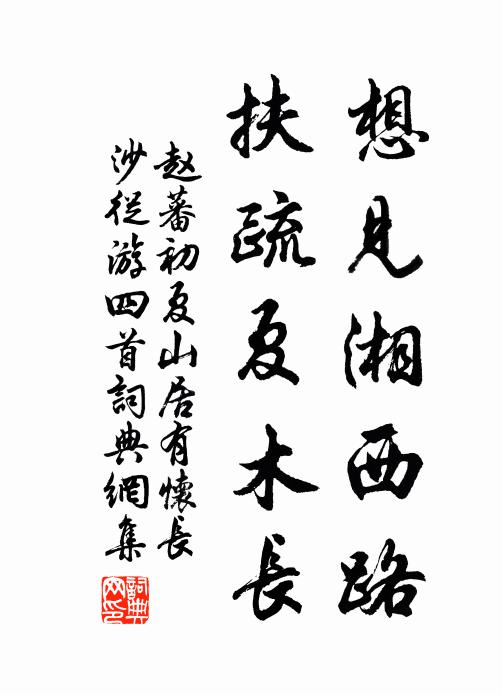 想見湘西路
扶疏夏木長
赵蕃初夏山居有懷長
沙從游四首詞典網集
詞典
网印